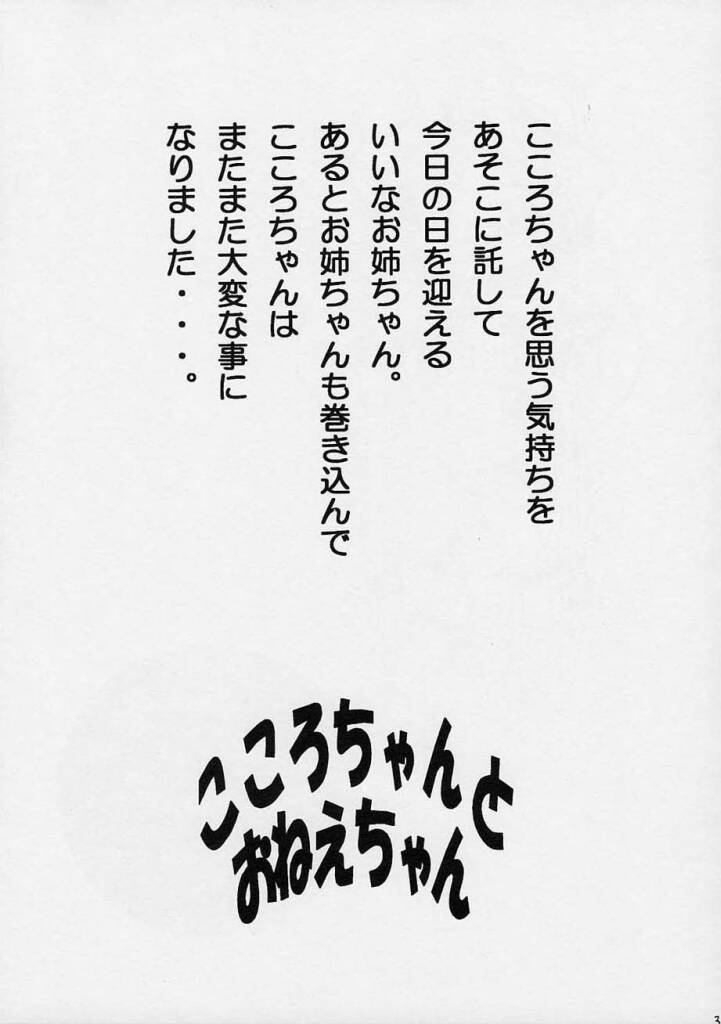 こころちゃんを思う気持ちを
あそこに託して
今日の日を迎える
いいなお姉ちゃん。
あるとお姉ちゃんも巻き込んで
こころちゃんは
またまた大変な事に
なりました・・・。
こころちゃんと
おねえちゃん
3